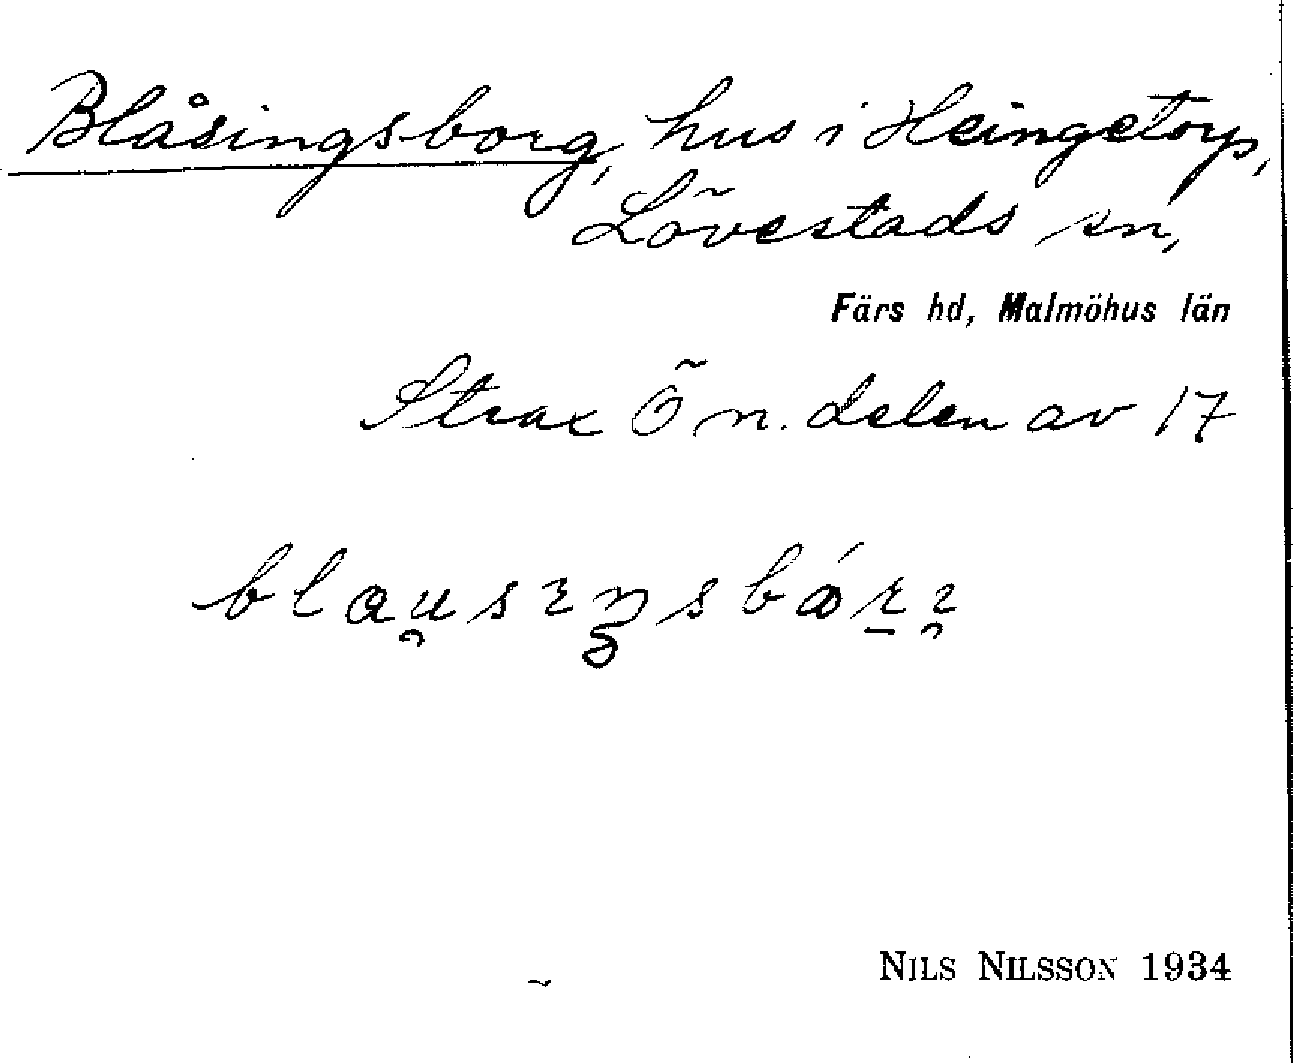 Blåsingsborg, hus i Heingetorp,
Lövestads sn,
Färs hd, Malmöhus län
Strax Ö n. delen av 17
NILS NILSSON 1934